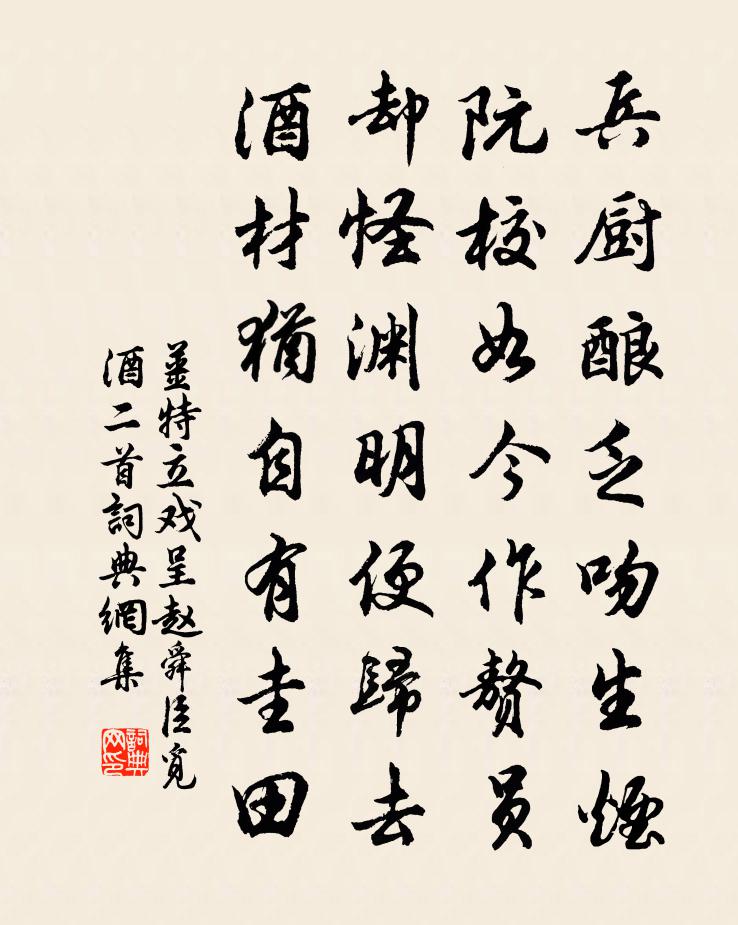 兵厨酿乏吻生煙
阮校如今作赘员
却怪渊明便歸去
酒材猶自有圭田
薑特立戏呈赵舜臣覓
酒二首詞典網集
詞典
网印